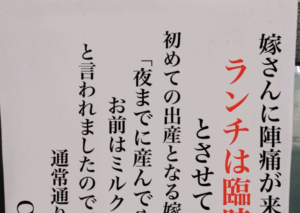 嫁さんに陣痛が来
ランチは臨時
とさせて
初めての出産となる嫁
「夜までに産んで
お前はミルク
と言われましたので
通常通り